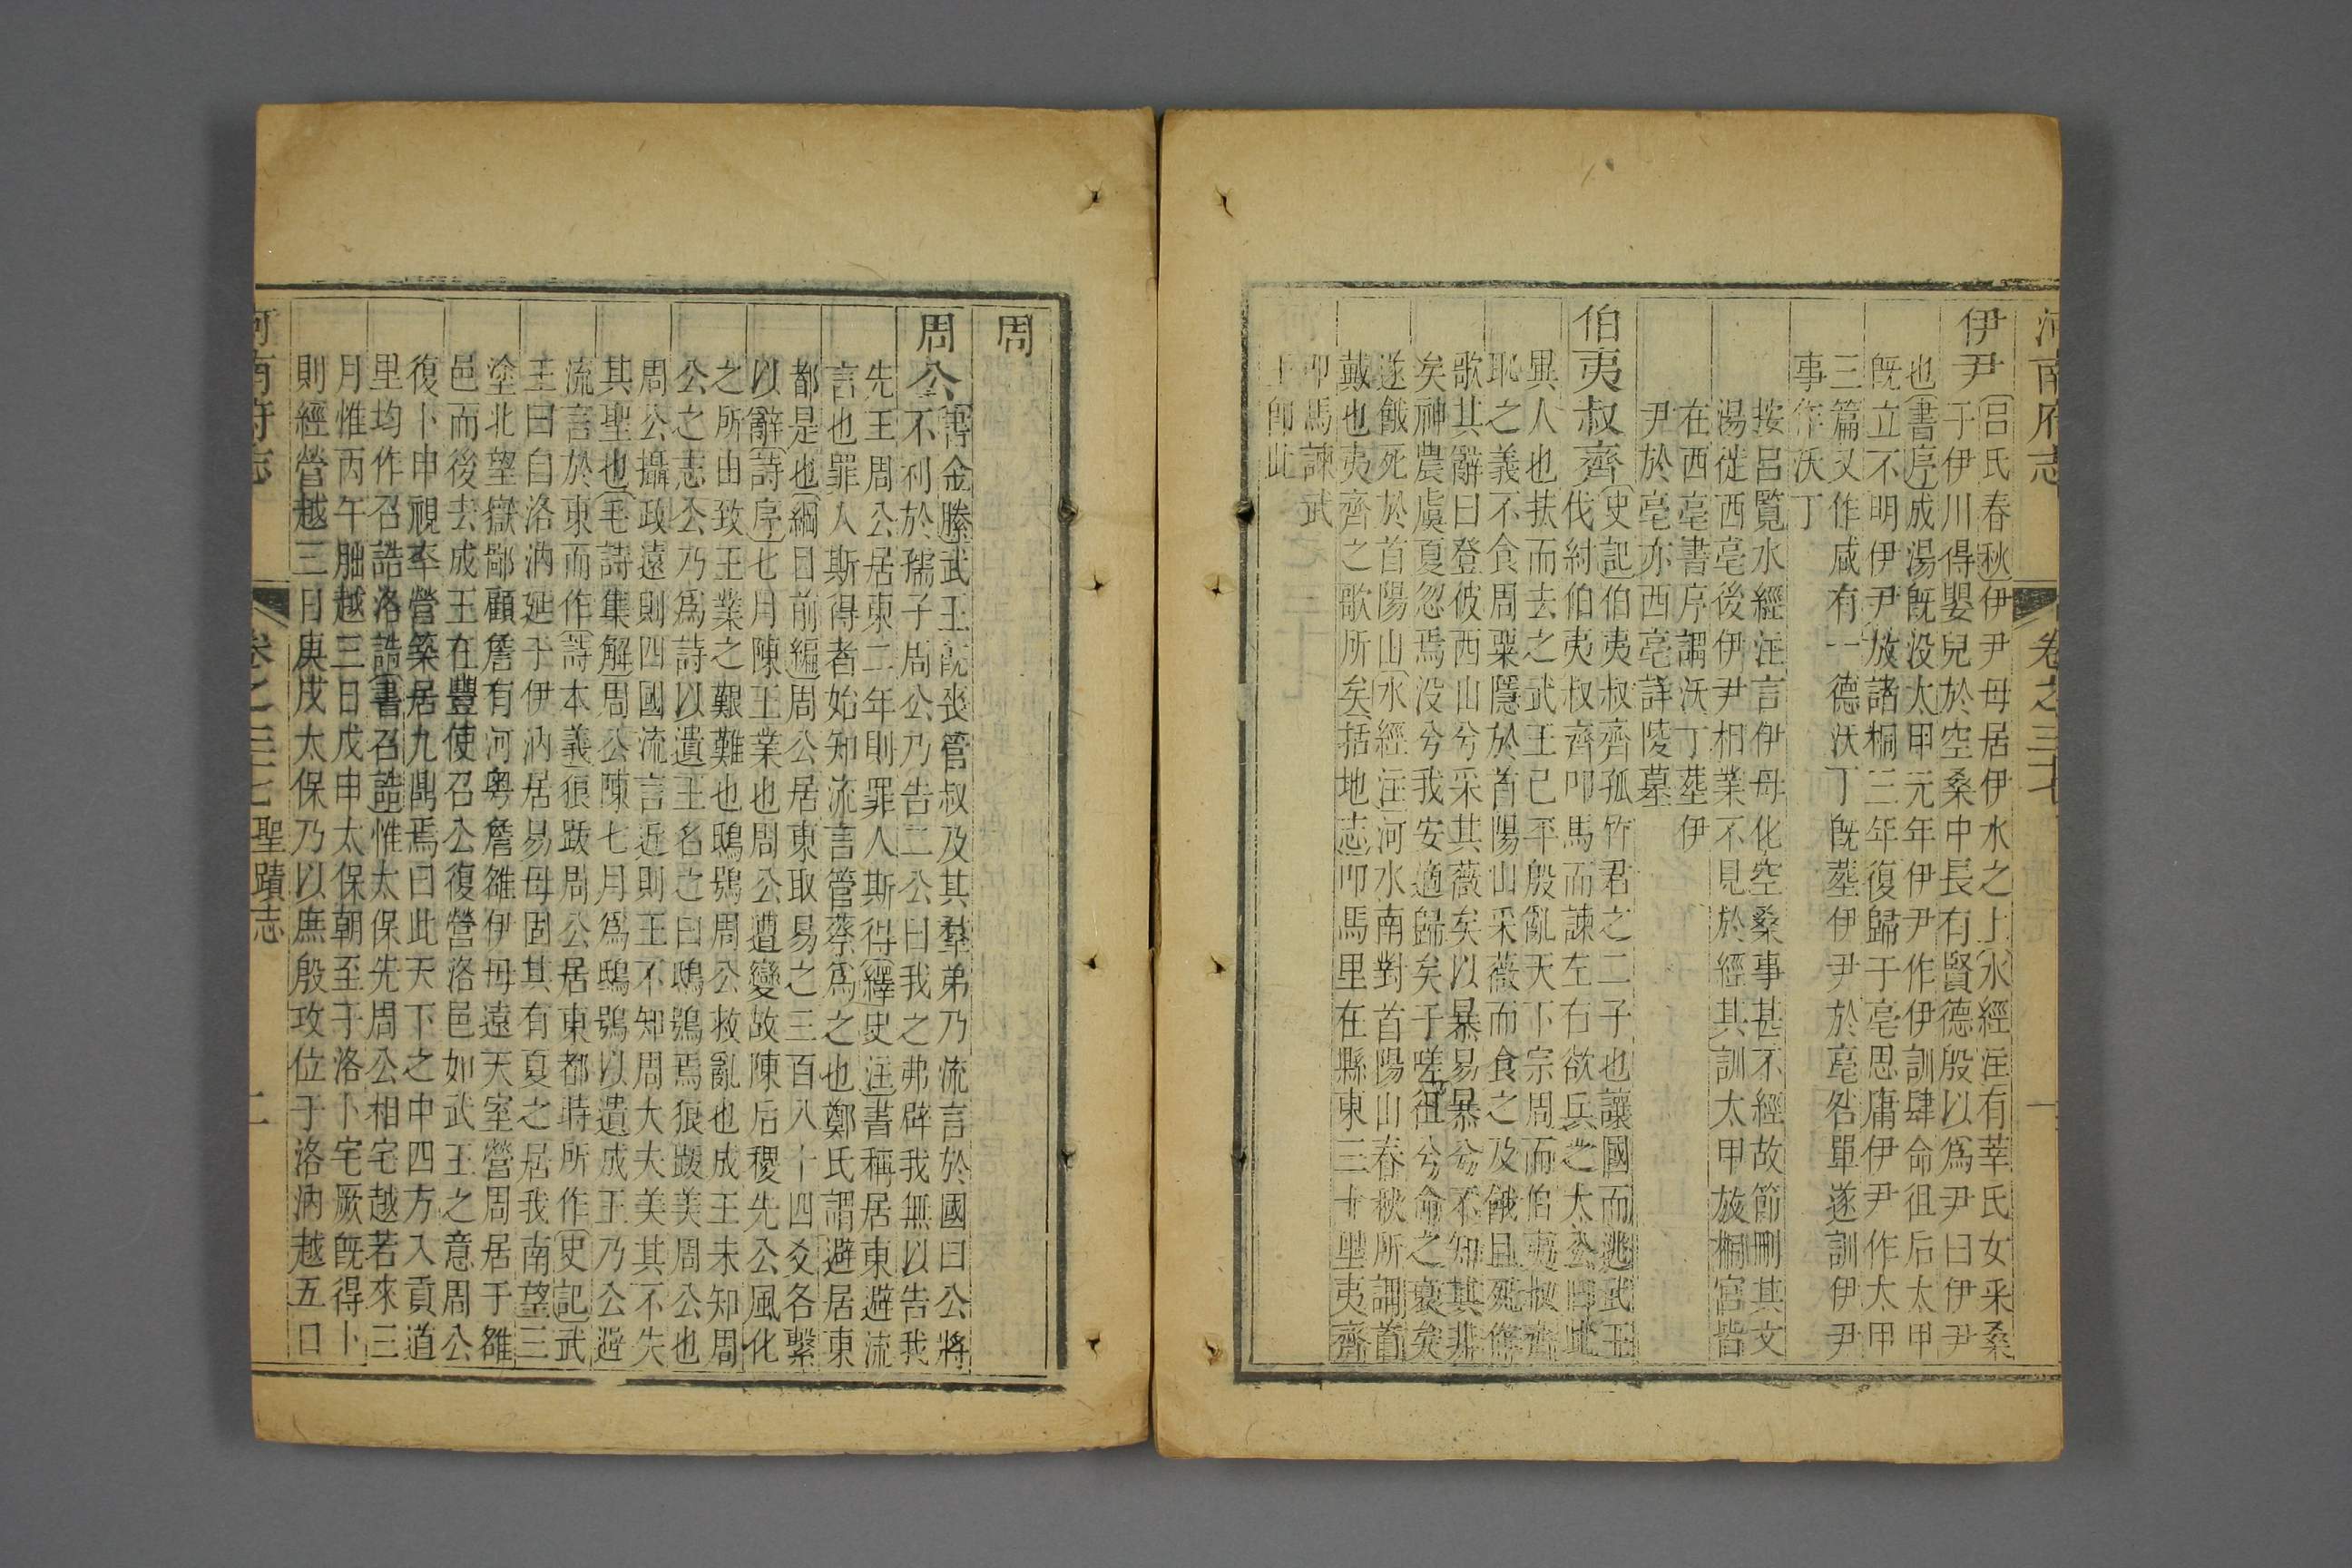 河南府志
卷之三七
伊尹
呂氏春秋伊尹母居伊水之上水經注有莘氏女采桑
于伊川得嬰兒於空桑中長有賢德殷以為尹曰伊尹
也書序成湯既沒太甲元年伊尹作伊訓肆命徂后太甲
既立不明伊尹放諸桐三年復歸于亳思庸伊尹作太甲
三篇又作咸有一德沃丁既葬伊尹於亳咎單遂訓伊尹
事作沃丁
按呂覽水經注言伊母化空桑事甚不經故節刪其文
湯從西亳後伊尹相業不見於經其訓太甲放桐宮皆
在西亳書序謂沃丁葬伊
尹於亳亦西亳詳陵墓
伯夷叔齊
史記伯夷叔齊孤竹君之二子也讓國而逃武王
伐紂伯夷叔齊叩馬而諫左右欲兵之太公曰此
異人也扶而去之武王已平殷亂天下宗周而伯夷叔齊
恥之義不食周粟隱於首陽山采薇而食之及餓且死作
歌其辭曰登彼西山兮采其薇矣以暴易暴兮不知其非
矣神農虞夏忽焉沒兮我安適歸矣于嗟徂兮命之衰矣
遂餓死於首陽山水經注河水南對首陽山春秋所謂首
戴也夷齊之歌所矣括地志叩馬里在縣東三十里夷齊
叩馬諫武
王即此
周
周公
書金縢武王既喪管叔及其羣弟乃流言於國曰公將
不利於孺子周公乃告二公曰我之弗辟我無以告我
先王周公居東二年則罪人斯得繹史注書稱居東避流
言也罪人斯得者始知流言管蔡為之也鄭氏謂避居東
都是也綱目前編周公居東取易之三百八十四爻各繫
以辭詩序七月陳王業也周公遭變故陳后稷先公風化
之所由致王業之艱難也鴟鴞周公救亂也成王未知周
公之志公乃為詩以遺王名之曰鴟鴞焉狼跋美周公也
周公攝政遠則四國流言近則王不知周大夫美其不失
其聖也毛詩集解周公陳七月為鴟鴞以遺成王乃公避
流言於東而作詩本義狼跋周公居東都時所作史記武
王曰自洛汭延于伊汭居易毋固其有夏之居我南望三
塗北望嶽鄙顧詹有河粵詹雒伊毋遠天室營周居于雒
邑而後去成王在豐使召公復營洛邑如武王之意周公
復卜申視卒營築居九鼎焉曰此天下之中四方入貢道
里均作召誥洛誥書召誥惟太保先周公相宅越若來三
月惟丙午朏越三日戊申太保朝至于洛卜宅厥既得卜
則經營越三日庚戌太保乃以庶殷攻位于洛汭越五日
河南府志
卷之三七
聖蹟志
二